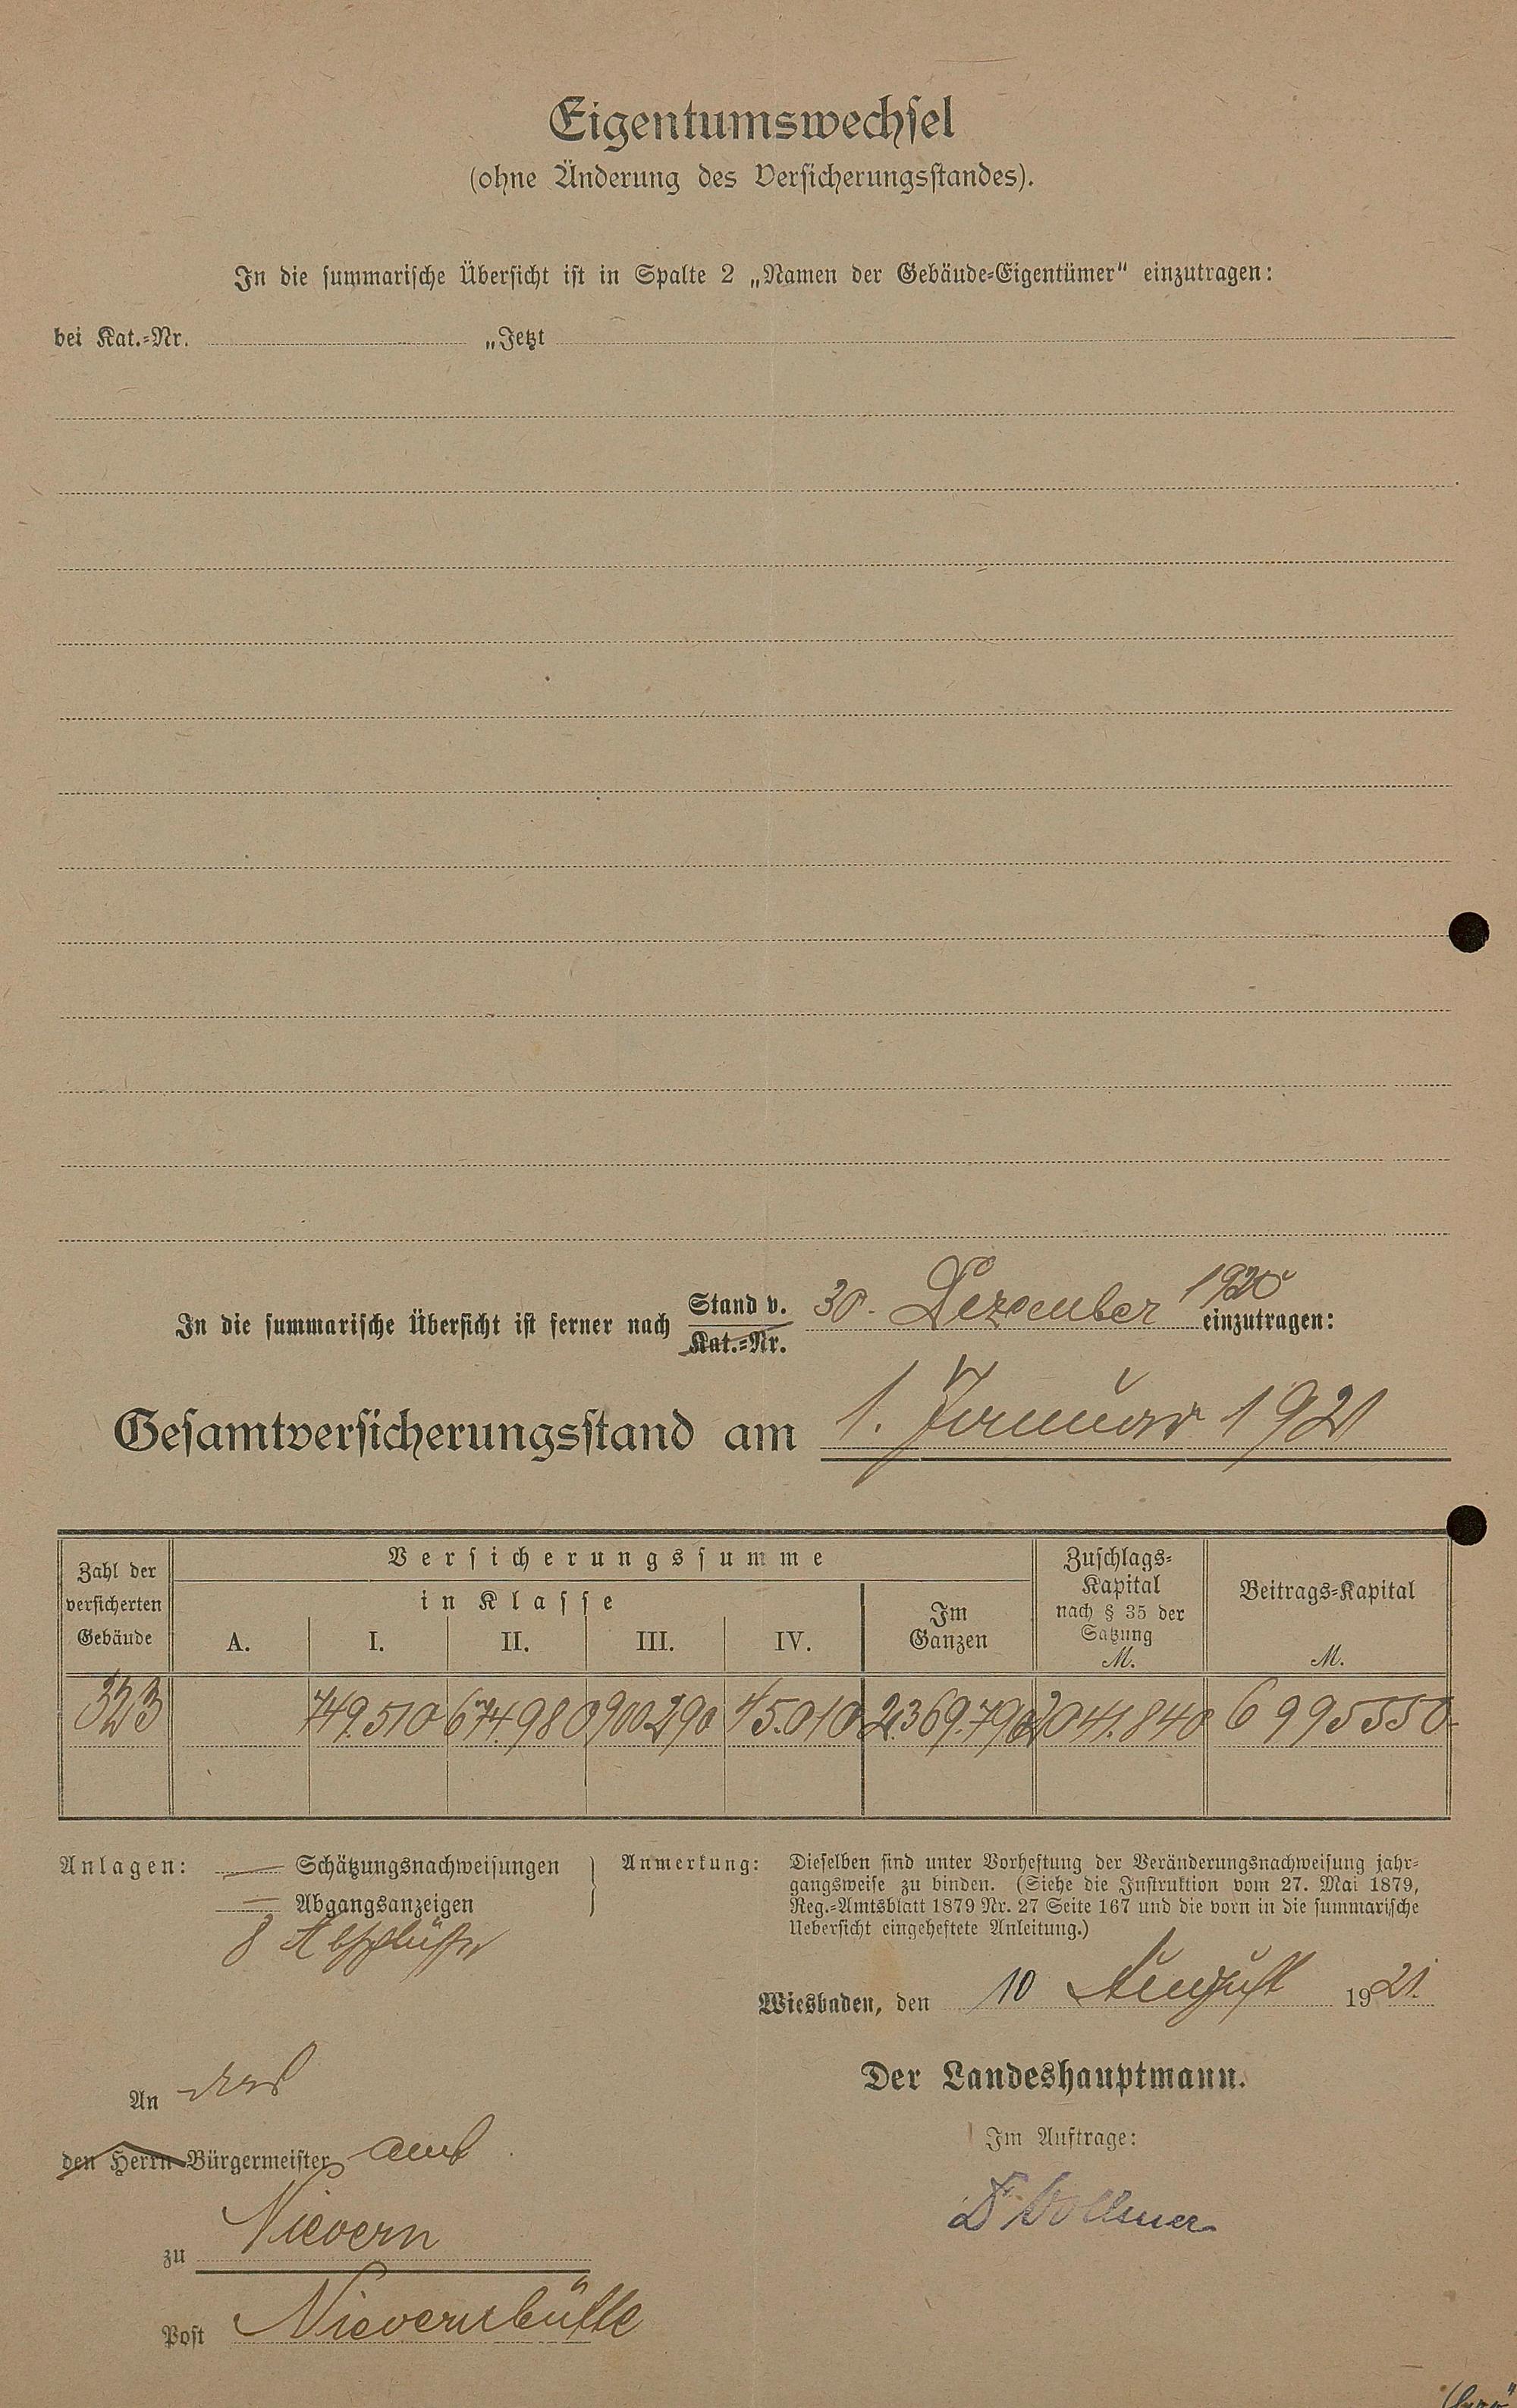 Eigentumswechsel
(ohne Änderung des Versicherungsstandes).
In die summarische Übersicht ist in Spalte 2 „Namen der Gebäude-Eigentümer“ einzutragen:
bei Kat.-Nr. „Jetzt
In die summarische Übersicht ist ferner nach Stand v. 30. Dezember 1920 einzutragen:
Kat.-Nr.
Gesamtversicherungsstand am 1. Januar 1921
Zahl der versicherten Gebäude
Versicherungssumme
in Klasse
A. I. II. III. IV.
Im Ganzen
Zuschlags-Kapital nach § 35 der Satzung M.
Beitrags-Kapital M.
323 749.510 674.980 900.290 45.010 2.369.790 2041.840 6995550
Anlagen: — Schätzungsnachweisungen
— Abgangsanzeigen
8 Abschlüsse
Anmerkung: Dieselben sind unter Vorheftung der Veränderungsnachweisung jahr-
gangsweise zu binden. (Siehe die Instruktion vom 27. Mai 1879,
Reg.-Amtsblatt 1879 Nr. 27 Seite 167 und die vorn in die summarische
Uebersicht eingeheftete Anleitung.)
Wiesbaden, den 10 August 1921.
Der Landeshauptmann.
Im Auftrage:
Dr Vollmer
An das
den Herrn Bürgermeister amt
zu Nievern
Post Nievernhütte